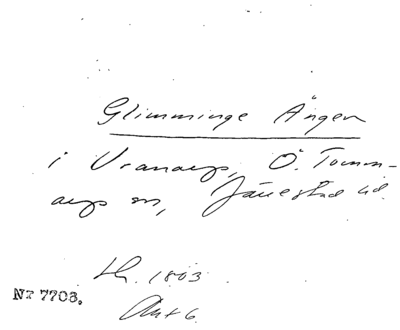 Glimminge Ängar
i Vranarp, Ö. Tomm-
arp sn, Järrestad hd.
th. 1803
Akt 6
Nr 7703.